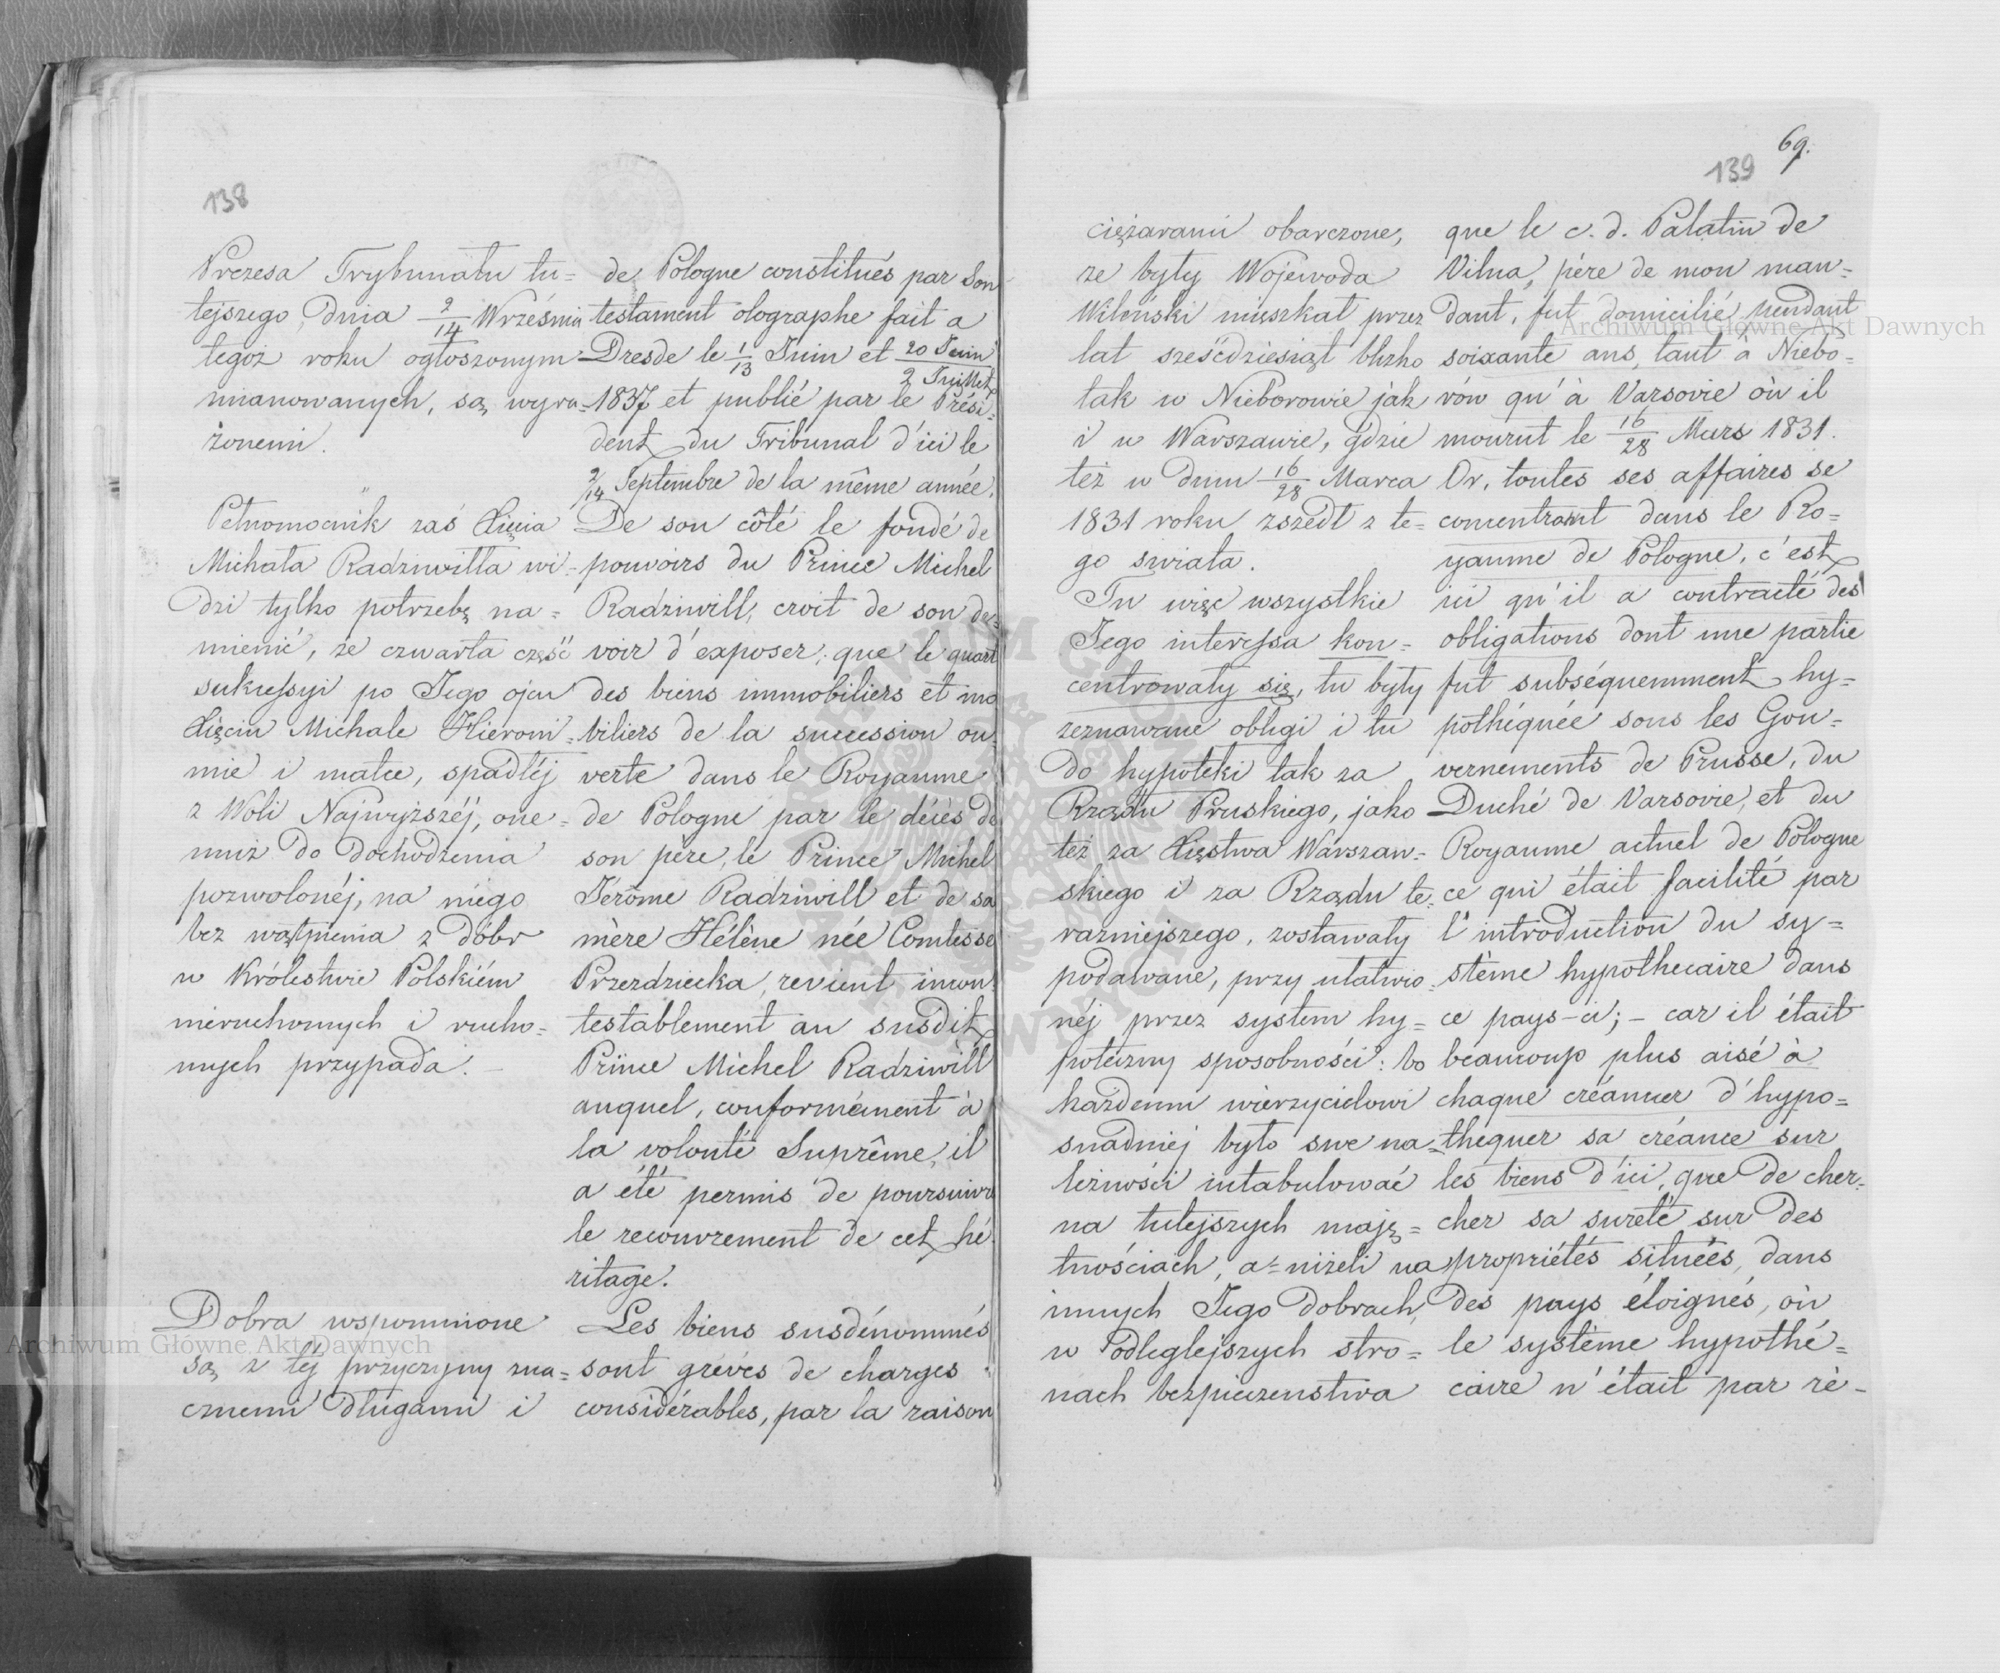 138
Prezesa Trybunału tu=
tejszego, dnia 2/14 Września
tegoż roku ogłoszonym
mianowanych, są wyra=
żonemi.
Pełnomocnik zaś Xięcia
Michała Radziwiłła wi=
dzi tylko potrzebę na=
mienić, że czwarta część
sukcessyi po Jego ojcu
Xięciu Michale Hieroni=
mie i matce, spadłéj
z Woli Najwyższéj, one=
muż do dochodzenia
pozwolonéj, na niego
bez wątpienia z dóbr
w Królestwie Polskiém
nieruchomych i rucho=
mych przypada. —
Dobra wspomnione
są z téj przyczyny zna=
cznemi długami i
de Pologne constitués par son
testament olographe fait a
Dresde le 1/13 Juin et 20 Juin/2 Juillet
1837 et publié par le Prési=
dent du Tribunal d'ici le
2/14 Septembre de la même année.
De son côté le fondé de
pouvoirs du Prince Michel
Radziwill, croit de son de=
voir d'exposer; que le quart
des biens immobiliers et mo
biliers de la succession ou=
verte dans le Royaume
de Pologne par le décès de
son père, le Prince Michel
Jérôme Radziwill et de sa
mère Hélène née Comtesse
Przezdziecka, revient incon=
testablement au susdit
Prince Michel Radziwill
auquel, conformément à
la volonté Suprême, il
a été permis de poursuivre
le recouvrement de cet hé=
ritage.
Les biens susdénommés
sont grévés de charges
considérables, par la raison
69.
139
ciężarami obarczone,
że były Wojewoda
Wileński mieszkał przez
lat sześćdziesiąt blizko
tak w Nieborowie jak
i w Warszawie, gdzie
też w dniu 16/28 Marca
1831 roku zszedł z te=
go swiata.
Tu więc wszystkie
Jego interessa kon=
centrowały się, tu były
zeznawane obligi i tu
do hypoteki tak za
Rządu Pruskiego, jako
też za Xięstwa Warszaw=
skiego i za Rządu te=
razniejszego, zostawały
podawane, przy ułatwio=
néj przez system hy=
poteczny sposobności: bo
każdemu wierzycielowi
snadniéj było swe na=
leżności intabulować
na tutejszych maję=
tnościach, a=niżeli na
innych Jego dobrach,
w odleglejszych stro=
nach bezpieczenstwa
que le c. d. Palatin de
Vilna, père de mon man=
dant, fut domicilié pendant
soixante ans, tant à Niebo=
rów qu'à Varsovie où il
mourut le 16/28 Mars 1831.
Or, toutes ses affaires se
concentrant dans le Ro=
yaume de Pologne, c'est
ici qu'il a contracté des
obligations dont une partie
fut subséquemment hy=
pothéquée sous les Gou=
vernements de Prusse, du
Duché de Varsovie, et du
Royaume actuel de Pologne
ce qui était facilité par
l'introduction du sy=
stème hypothecaire dans
ce pays-ci; — car il était
beaucoup plus aisé à
chaque créancier d'hypo=
thequer sa créance sur
les biens d'ici, que de cher=
cher sa sureté sur des
propriétés situées, dans
des pays éloignés, où
le système hypothé=
caire n'était par ré-
Archiwum Główne Akt Dawnych
Archiwum Główne Akt Dawnych